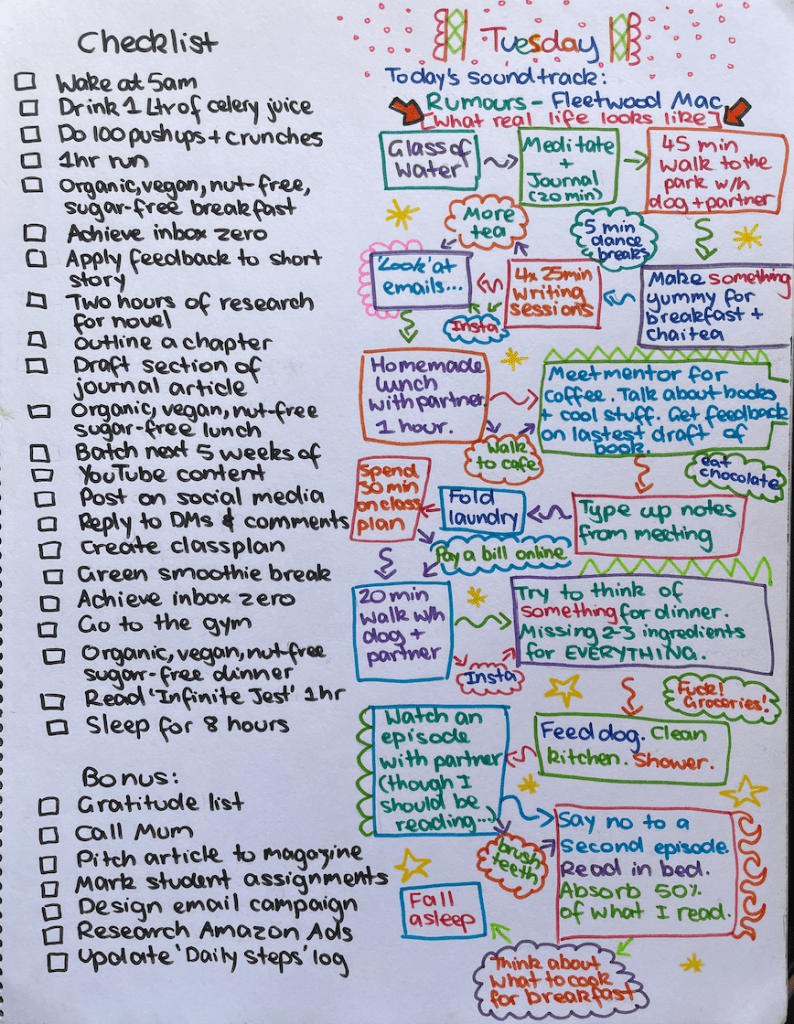 Checklist
Wake at 5am
Drink 1 Ltr of celery juice
Do 100 pushups + crunches
1hr run
Organic, vegan, nut-free,
sugar-free breakfast
Achieve inbox zero
Apply feedback to short
story
Two hours of research
for novel
Outline a chapter
Draft section of
journal article
Organic, vegan, nut-free
sugar-free lunch
Batch next 5 weeks of
YouTube content
Post on social media
Reply to DMs & comments
Create classplan
Green smoothie break
Achieve inbox zero
Go to the gym
Organic, vegan, nut-free
sugar-free dinner
Read 'Infinite Jest' 1hr
Sleep for 8 hours
Bonus:
Gratitude list
Call Mum
Pitch article to magazine
Mark student assignments
Design email campaign
Research Amazon Ads
Update 'Daily steps' log
Tuesday
Today's soundtrack:
Rumours - Fleetwood Mac
[What real life looks like]
Glass of
Water
Meditate
+
Journal
(20 min)
45 min
walk to the
park w/h
dog + partner
Make something
yummy for
breakfast +
chai tea
5 min
dance
breaks
4x 25min
writing
sessions
More
tea
Insta
'Look' at
emails...
Homemade
lunch
with partner
1 hour.
Walk
to cafe
Meet mentor for
coffee. Talk about books
+ cool stuff. Get feedback
on lastest draft of
book.
eat
chocolate
Type up notes
from meeting
Fold
laundry
Spend
30 min
on class
plan
Pay a bill online
20 min
walk w/h
dog +
partner
Insta
Try to think of
something for dinner.
Missing 2-3 ingredients
for EVERYTHING.
Fuck!
Groceries!
Feed dog. Clean
kitchen. Shower.
Watch an
episode
with partner
(though I
should be
reading...)
brush
teeth
Say no to a
second episode.
Read in bed.
Absorb 50%
of what I read.
Think about
what to cook
for breakfast
Fall
asleep